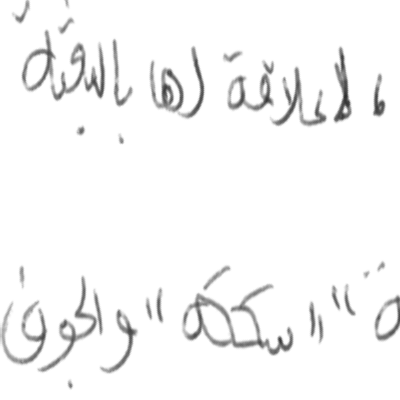 ، لا علاقة لها بالبقية
ة " اسكتة " والجوف